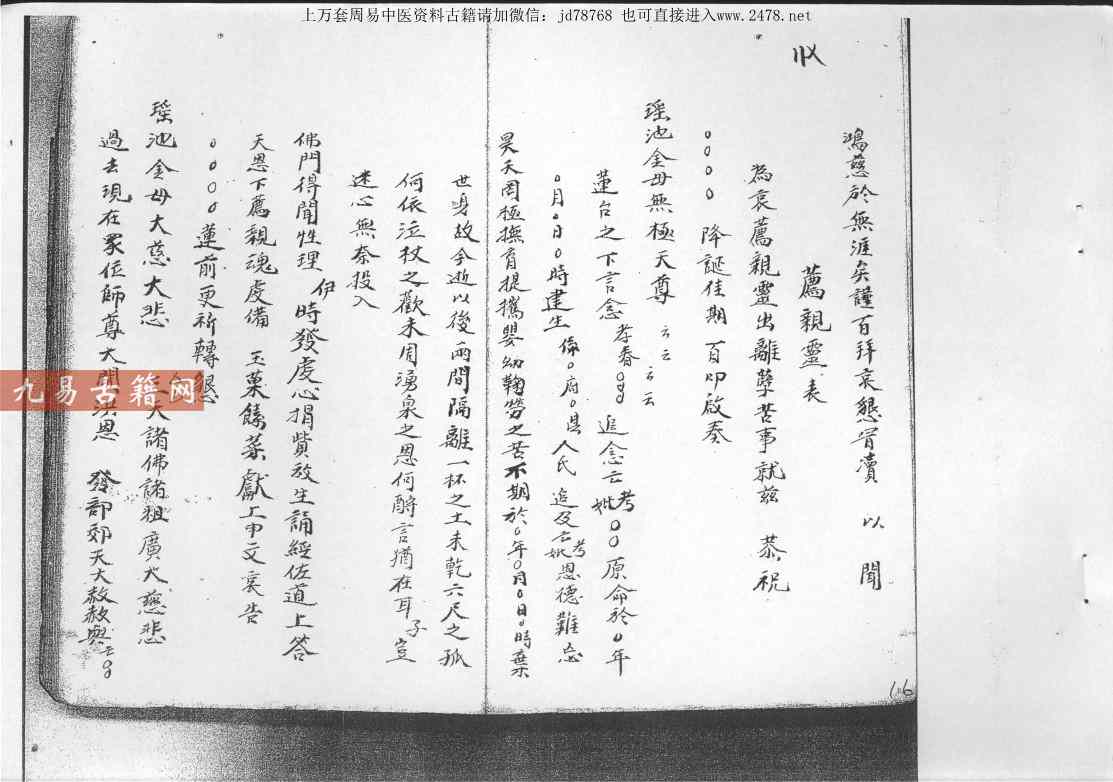 上万套周易中医资料古籍请加微信：jd78768 也可直接进入www.2478.net
收
鴻慈於無涯矣謹百拜哀懇冒瀆 以 聞
薦親靈表
為哀薦親靈出離孽苦事就兹 恭祝
○○○○ 降誕佳期 百叩啟奏
瑶池金母無極天尊 云云 云云
蓮台之下言念 孝眷○○ 追念亡考妣○○原命於○年
○月○日○時建生 係○府○县人氏 追及亡考妣恩德難忘
昊天罔極撫育提攜嬰幼鞠勞之苦不期於○年○月○日○時棄
世身故今逝以後兩間隔離一杯之土未乾六尺之孤
何依泣杖之歡未周湧泉之恩何酧言猶在耳子豈
迷心無奈投入
佛門得聞性理 伊時發虔心捐貲放生誦經佐道上答
天恩下薦親魂虔備 玉菓餚菜獻上申文哀告
○○○○蓮前更祈轉懇
瑶池金母大慈大悲 大諸佛諸祖廣大慈悲
過去現在眾位師尊大開洪恩 發部郊天大赦赦與亡○
九易古籍网
116